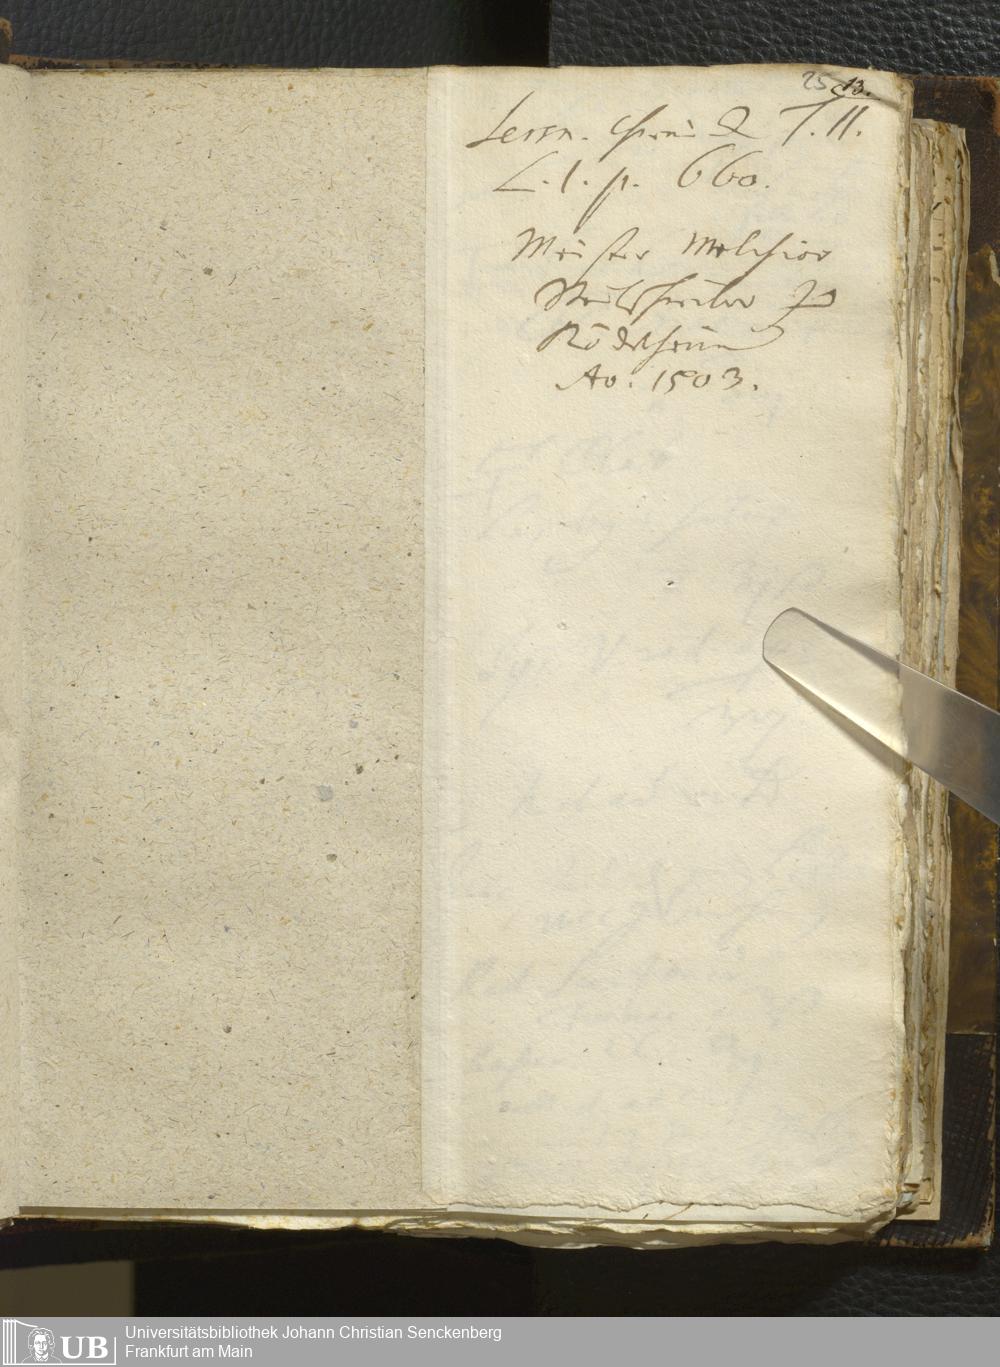 25 13.
Lersn. Chronick T. II.
L. 1. p. 660.
Meister Melchior
zu
Rödelheim
Ao. 1503.
UB
Universitätsbibliothek Johann Christian Senckenberg
Frankfurt am Main